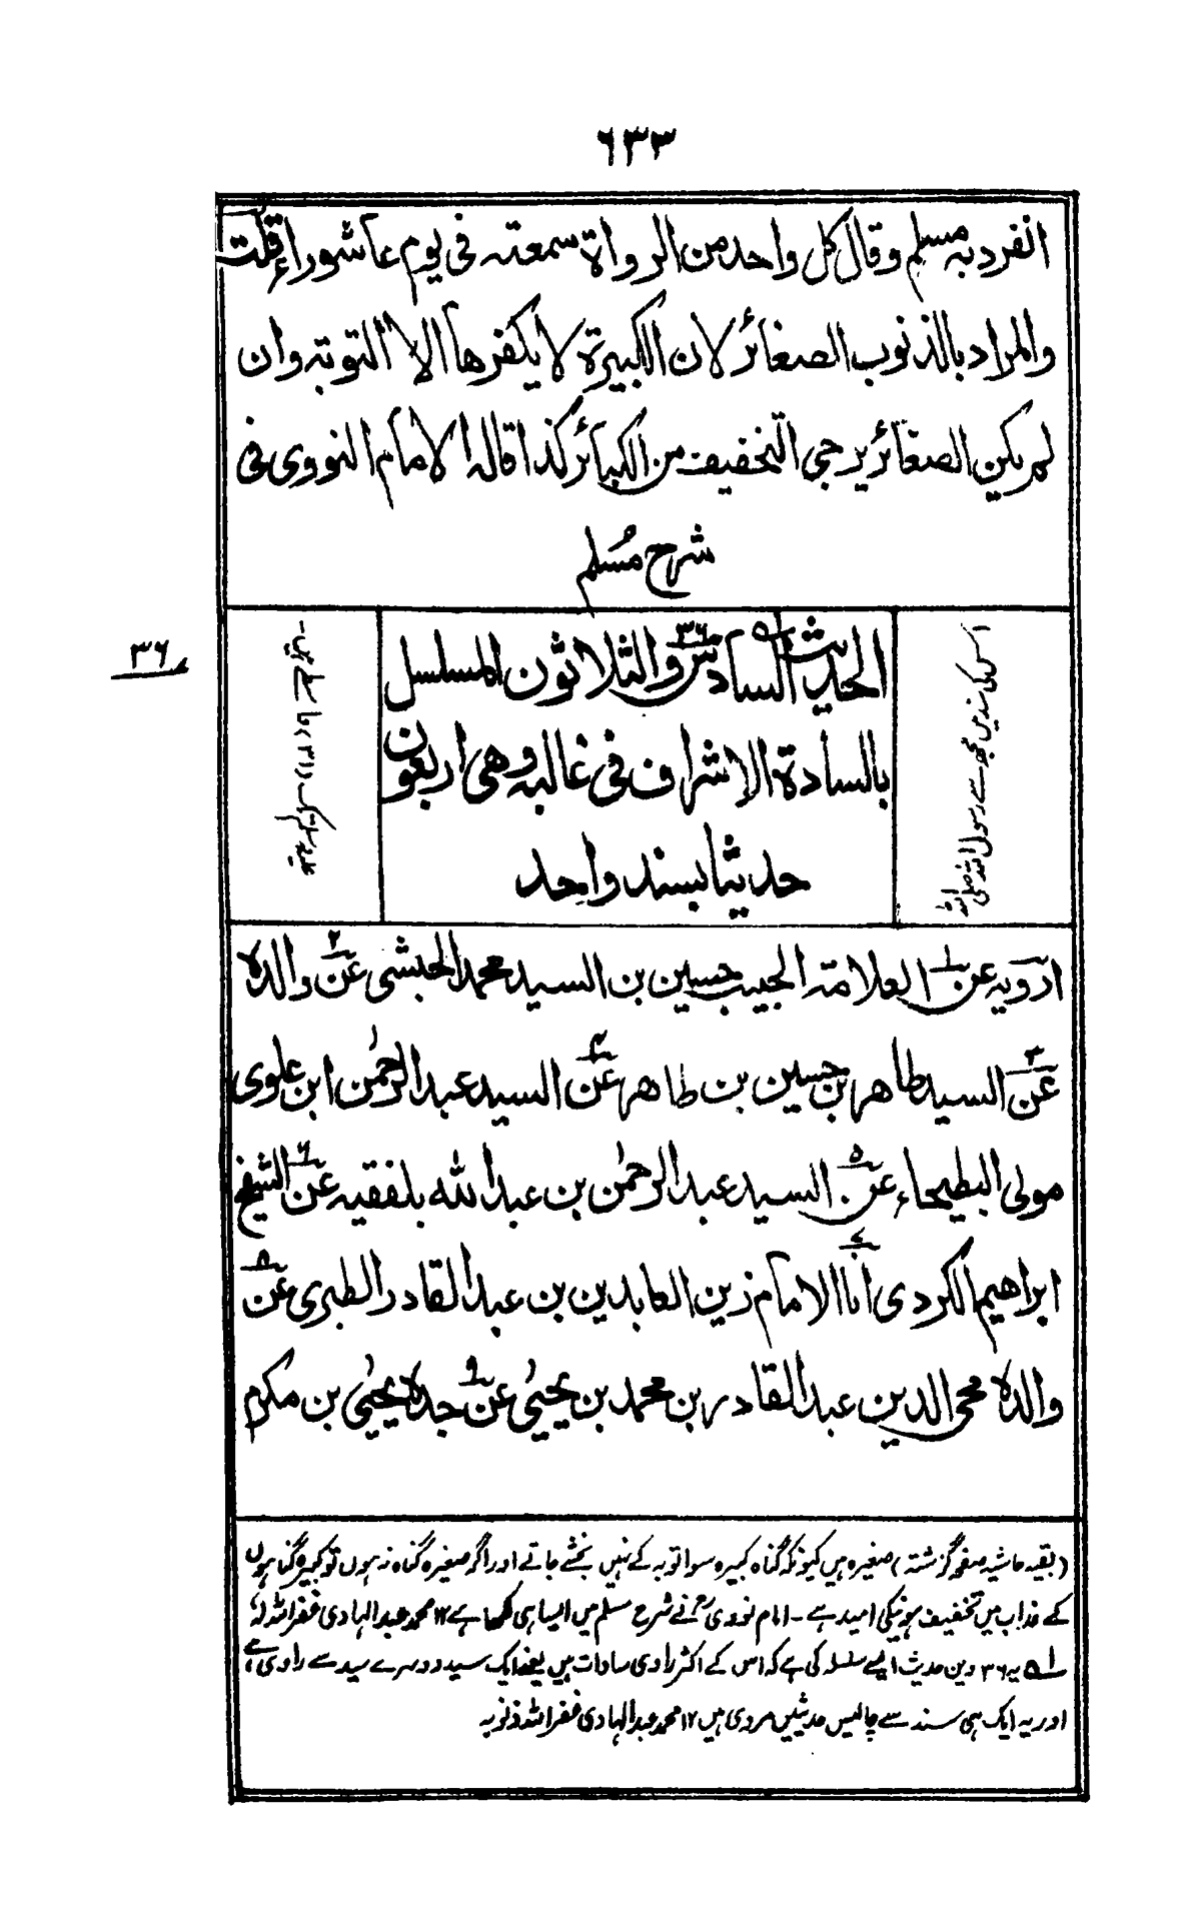 ٦٣٣
انفرد به مسلم وقال كل واحد من الرواة سمعته فى يوم عاشوراء قلت
والمراد بالذنوب الصغائر لان الكبيرة لا يكفرها الا التوبة وان
لم يكن الصغائر يرجى التخفيف من الكبائر كذا قاله الامام النووى فى
شرح مُسلم
٣٦
الحديث السادس والثلاثون المسلسل
بالسادة الاشراف فى غالبه وهى اربعون
حديثا بسند واحد
اس کی سند میں مجھ سے رسول اللہ صلی اللہ
علیہ وسلم تک (٣١) واسطے ہیں۔
ارويه عن العلامة الحبيب حسين بن السيد محمد الحبشى عن والده
عن السيد طاهر بن حسين بن طاهر عن السيد عبد الرحمٰن ابن علوى
مولى البطيحاء عن السيد عبد الرحمٰن بن عبد الله بلفقيه عن الشيخ
ابراهيم الكردى انا الامام زين العابدين بن عبد القادر الطبرى عن
والده محى الدين عبد القادر بن محمد بن يحيىٰ عن جده يحيىٰ بن مكرم
(بقیہ حاشیہ صفحہ گزشتہ) صغیرہ ہیں کیونکہ گناہ کبیرہ سوا توبہ کے نہیں بخشے جاتے اور اگر صغیرہ گناہ نہ ہوں تو کبیرہ گناہوں
کے عذاب میں تخفیف ہونیکی امید ہے۔ امام نووی نے شرح مسلم میں ایسا ہی لکھا ہے ١٢ محمد عبد الہادی غفر اللہ لہٗ
١ یہ ٣٦ ویں حدیث ایسے سلسلہ کی ہے کہ اس کے اکثر راوی سادات ہیں یعنے ایک سید دوسرے سید سے راوی ہے
اور یہ ایک ہی سند سے چالیس حدیثیں مروی ہیں ١٢ محمد عبد الہادی غفر اللہ ذنوبہ